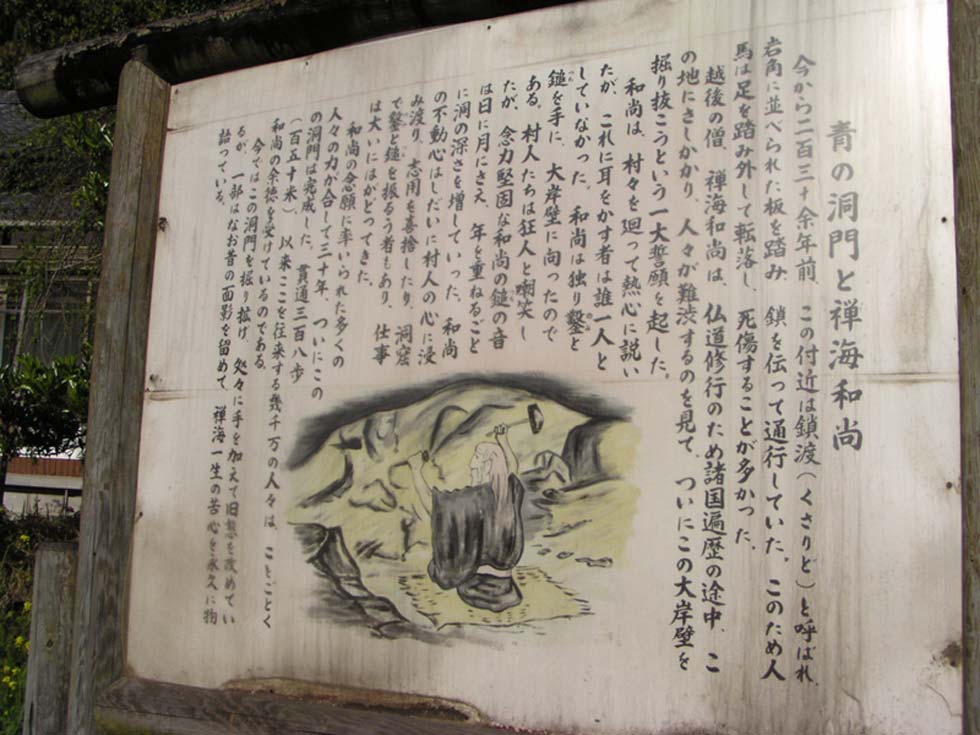 青の洞門と禅海和尚
今から二百三十余年前、この付近は鎖渡(くさりど)と呼ばれ、
岩角に並べられた板を踏み、鎖を伝って通行していた。このため人
馬は足を踏み外して転落し、死傷することが多かった。
越後の僧、禅海和尚は、仏道修行のため諸国遍歴の途中、こ
の地にさしかかり、人々が難渋するのを見て、ついにこの大岸壁を
掘り抜こうという一大誓願を起した。
和尚は、村々を廻って熱心に説い
たが、これに耳をかす者は誰一人と
していなかった。和尚は独り鑿と
鎚を手に、大岸壁に向ったので
ある。村人たちは狂人と嘲笑し
たが、念力堅固な和尚の鎚の音
は日に月にさえ、年を重ねるごと
に洞の深さを増していった。和尚
の不動心はしだいに村人の心に浸
み渡り、志用を喜捨したり、洞窟
で鑿と鎚を振るう者もあり、仕事
は大いにはかどってきた。
和尚の念願に率いられた多くの
人々の力が合して三十年、ついにこの
の洞門は完成した。貫通三百八歩
(百五十米)、以来ここを往来する幾千万の人々は、ことごとく
和尚の余徳を受けているのである。
今ではこの洞門を掘り拡げ、処々に手を加えて旧態を改めてい
るが、一部はなお昔の面影を留めて、禅海一生の苦心を永久に物
語っている。